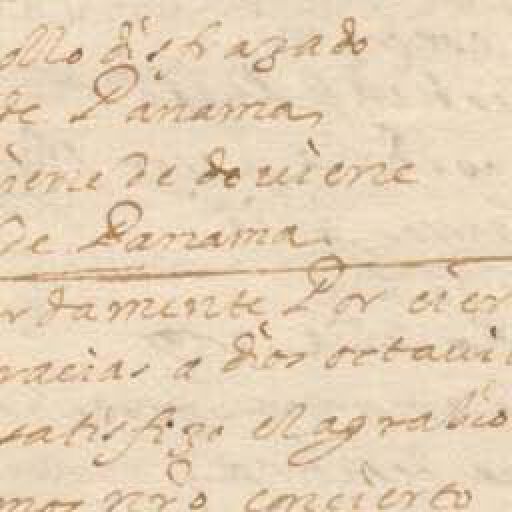 ollo disfrazado
de Panama,
iene de do uiene
de Panama.
rdamente Por cier
racias a dios octaui
satisfizo el agrabio
mos nro concierto